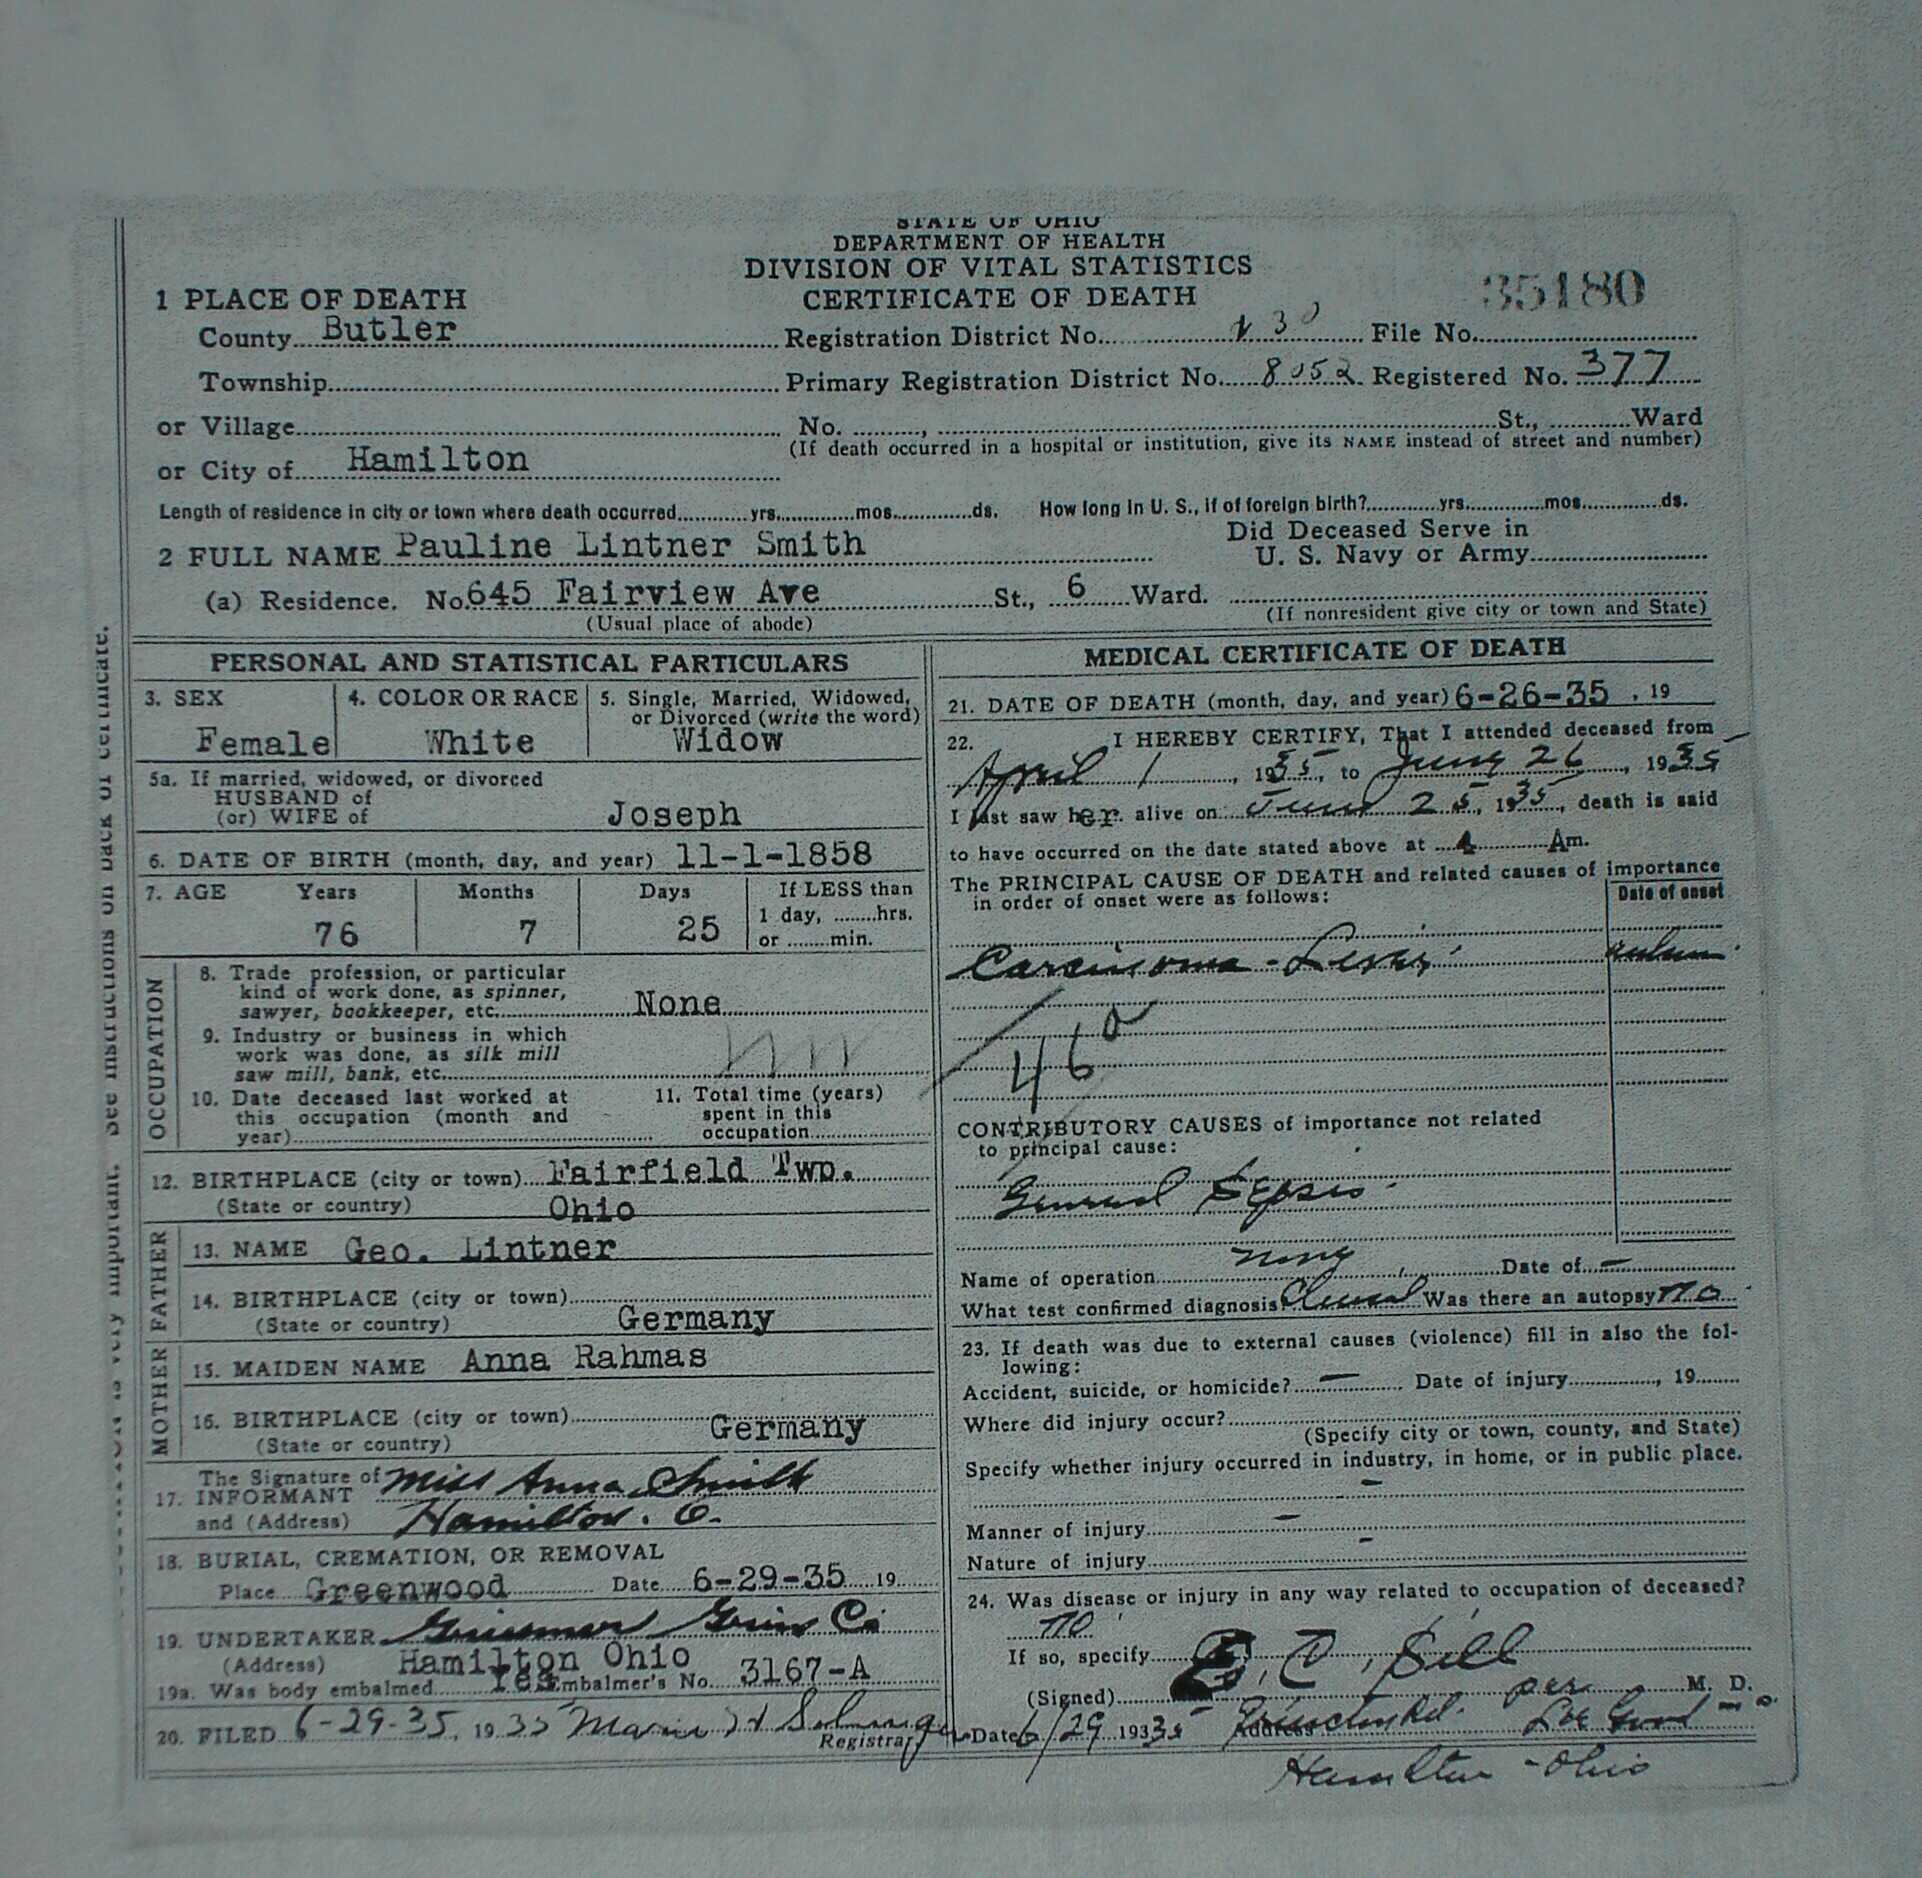 STATE OF OHIO
DEPARTMENT OF HEALTH
DIVISION OF VITAL STATISTICS
CERTIFICATE OF DEATH
35180
1 PLACE OF DEATH
County Butler
Registration District No. 30 File No.
Township
Primary Registration District No. 8052 Registered No. 377
or Village
No. , St., Ward
(If death occurred in a hospital or institution, give its NAME instead of street and number)
or City of Hamilton
Length of residence in city or town where death occurred yrs. mos. ds. How long in U. S., if of foreign birth? yrs. mos. ds.
2 FULL NAME Pauline Lintner Smith
Did Deceased Serve in
U. S. Navy or Army
(a) Residence. No. 645 Fairview Ave St., 6 Ward.
(Usual place of abode)
(If nonresident give city or town and State)
See instructions on back of certificate.
PERSONAL AND STATISTICAL PARTICULARS
3. SEX
Female
4. COLOR OR RACE
White
5. Single, Married, Widowed,
or Divorced (write the word)
Widow
5a. If married, widowed, or divorced
HUSBAND of
(or) WIFE of Joseph
6. DATE OF BIRTH (month, day, and year) 11-1-1858
7. AGE Years Months Days If LESS than
1 day, hrs.
76 7 25 or min.
OCCUPATION
8. Trade profession, or particular
kind of work done, as spinner,
sawyer, bookkeeper, etc. None
9. Industry or business in which
work was done, as silk mill
saw mill, bank, etc.
10. Date deceased last worked at
this occupation (month and
year)
11. Total time (years)
spent in this
occupation
12. BIRTHPLACE (city or town) Fairfield Twp.
(State or country) Ohio
FATHER
13. NAME Geo. Lintner
14. BIRTHPLACE (city or town)
(State or country) Germany
MOTHER
15. MAIDEN NAME Anna Rahmas
16. BIRTHPLACE (city or town)
(State or country) Germany
The Signature of
17. INFORMANT Miss Anna Smith
and (Address) Hamilton. O.
18. BURIAL, CREMATION, OR REMOVAL
Place Greenwood Date 6-29-35 19
19. UNDERTAKER Co
(Address) Hamilton Ohio
19a. Was body embalmed Yes Embalmer's No. 3167-A
20. FILED 6-29-35, 1935
Registrar
MEDICAL CERTIFICATE OF DEATH
21. DATE OF DEATH (month, day, and year) 6-26-35 , 19
22. I HEREBY CERTIFY, That I attended deceased from
April 1, 1935, to June 26, 1935
I last saw her alive on June 25, 1935, death is said
to have occurred on the date stated above at Am.
The PRINCIPAL CAUSE OF DEATH and related causes of importance
in order of onset were as follows:
Date of onset
Carcinoma -
46
CONTRIBUTORY CAUSES of importance not related
to principal cause:
General Sepsis
Name of operation none Date of -
What test confirmed diagnosis Clinical Was there an autopsy no
23. If death was due to external causes (violence) fill in also the fol-
lowing:
Accident, suicide, or homicide? - Date of injury , 19
Where did injury occur?
(Specify city or town, county, and State)
Specify whether injury occurred in industry, in home, or in public place.
-
Manner of injury -
Nature of injury -
24. Was disease or injury in any way related to occupation of deceased?
no
If so, specify
(Signed) C. Sill M. D.
per
Date 6/29 1935 Address
Hamilton - Ohio